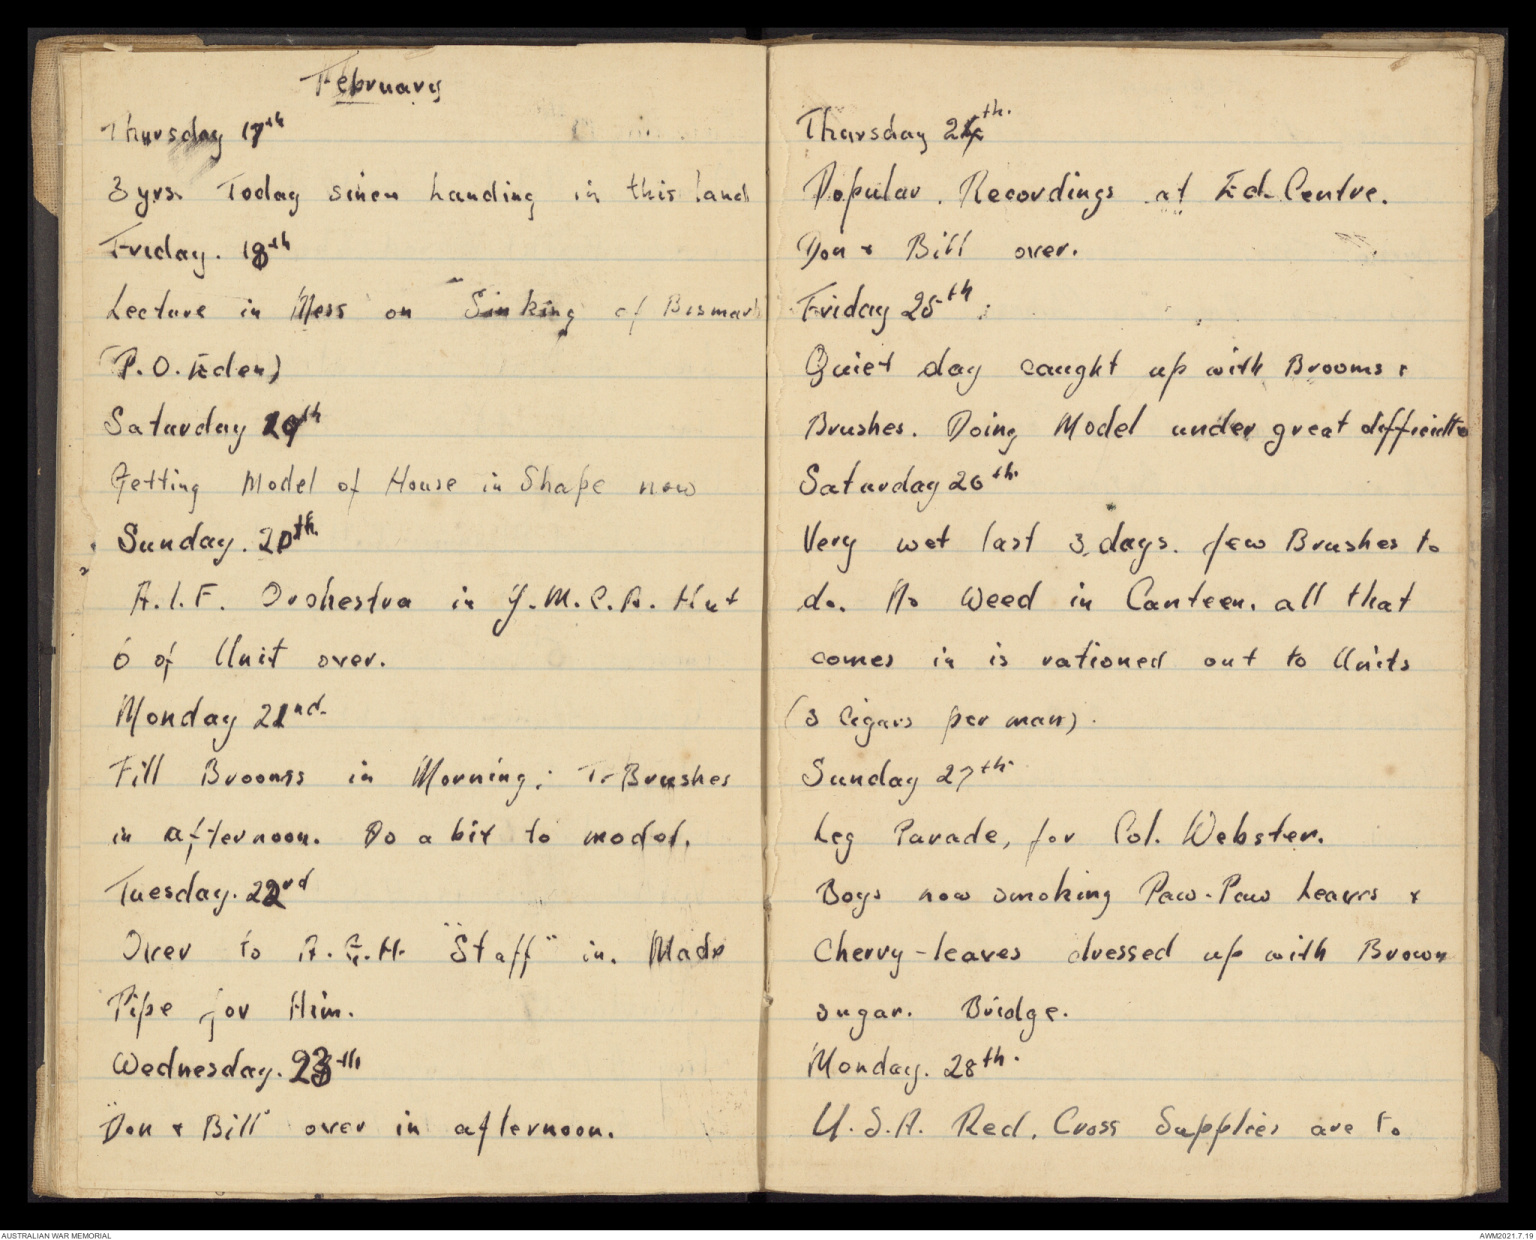 February
Thursday 17th
3 yrs. Today sinen Landing in this land
Friday. 18th
Lecture in Mess on "Sinking of Bismark
(P.O. Eden)
Saturday 19th
Getting Model of House in Shape now
Sunday. 20th.
A.I.F. Orchestra in Y.M.C.A. Hut
6 of Unit over.
Monday 21nd.
Fill Brooms in Morning; T-Brushes
in afternoon. Do a bit to model.
Tuesday. 22rd
Over to A.G.H. "Staff" in. Made
Pipe for Him.
Wednesday. 23th
"Don & Bill" over in afternoon.
Thursday 24th.
Popular. Recordings at Ed. Centre.
Don & Bill over.
Friday 25th
Quiet day caught up with Brooms &
Brushes. Doing Model under great
Saturday 26th.
Very wet last 3 days. few Brushes to
do. No Weed in Canteen. all that
comes in is rationed out to Units
(3 Cigars per man).
Sunday 27th.
Leg Parade, for Col. Webster.
Boys now smoking Paw-Paw Leaves &
Cherry-leaves dressed up with Brown
sugar. Bridge.
Monday. 28th.
U.S.A. Red. Cross Supplies are to
AUSTRALIAN WAR MEMORIAL
AWM2021.7.19